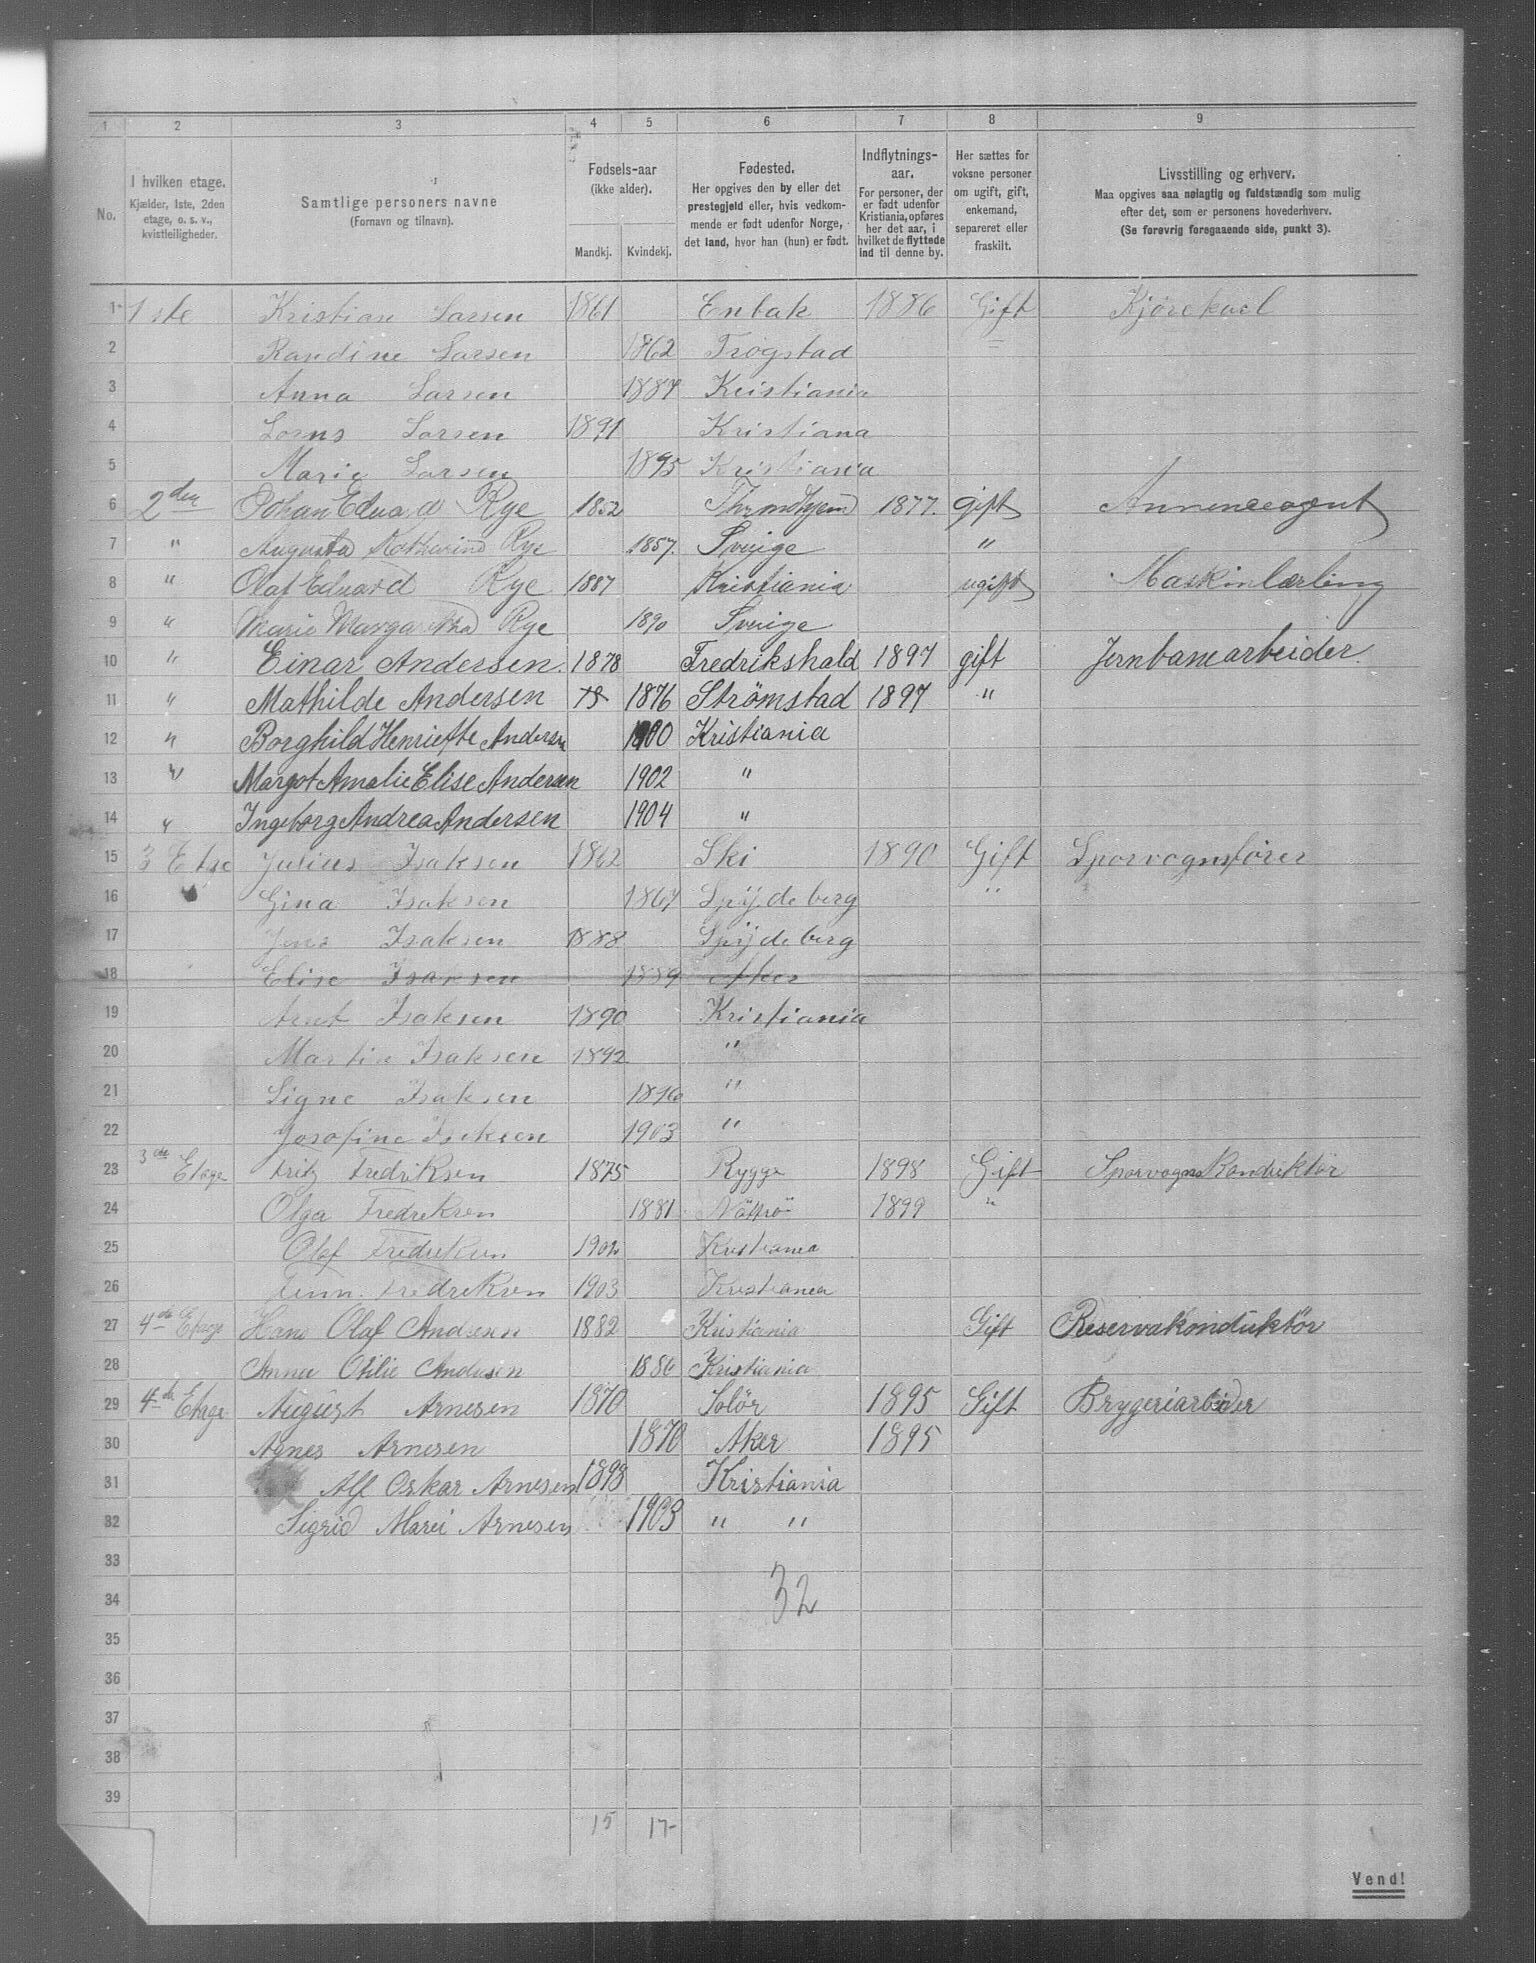 1 2 3 4 5 6 7 8 9
No.
I hvilken etage.
Kjælder, 1ste, 2den
etage, o. s. v.,
kvistleiligheder.
Samtlige personers navne
(Fornavn og tilnavn).
Fødsels-aar
(ikke alder).
Mandkj. Kvindekj.
Fødested.
Her opgives den by eller det
prestegjeld eller, hvis vedkom-
mende er født udenfor Norge,
det land, hvor han (hun) er født.
Indflytnings-
aar.
For personer, der
er født udenfor
Kristiania, opføres
her det aar, i
hvilket de flyttede
ind til denne by.
Her sættes for
voksne personer
om ugift, gift,
enkemand,
separeret eller
fraskilt.
Livsstilling og erhverv.
Maa opgives saa nøiagtig og fuldstændig som mulig
efter det, som er personens hovederhverv.
(Se forøvrig foregaaende side, punkt 3).
1 1ste Kristian Larsen 1861 Enbak 1886 Gift Kjørekael
2 Randine Larsen 1862 Trøgstad
3 Anna Larsen 1887 Kristiania
4 Lorns Larsen 1891 Kristiana
5 Marie Larsen 1895 Kristiania
6 2den Johan Eduard Rye 1852 Throndhjem 1877. gift Annonceagent
7 " Augusta Katharina Rye 1857. Sverige "
8 " Olaf Eduard Rye 1887 Kristiania ugift Maskinlærling
9 " Marie Margaretha Rye 1890 Sverige
10 " Einar Andersen. 1878 Fredrikshald 1897 gift Jernbanearbeider.
11 " Mathilde Andersen 18 1876 Strömstad 1897 "
12 " Borghild Henriette Andersn 1900 Kristiania
13 " Margot Amalie Elise Andersen 1902 "
14 " Ingeborg Andrea Andersen 1904 "
15 3 Etse Julius Isaksen 1862 Ski 1890 Gift Sporvognsfører
16 " Gina Isaksen 1867 Spijdeberg "
17 Jens Isaksen 1888 Spijdeberg
18 Elise Isaksen 1889 Aker
19 Arnt Isaksen 1890 Kristiania
20 Martin Isaksen 1892 "
21 Signe Isaksen 1896 "
22 Josefine Isaksen 1903 "
23 3de Etage Fritz Fredriksen 1875 Rygge 1898 Gift Sporvognskonduktør
24 Olga Fredriksen 1881 1899 "
25 Olaf Fredriksen 1902 Kristiania
26 Finn Fredriksen 1903 Kristiania
27 4de Etage Hans Olaf Andersen 1882 Kristiania Gift Reservekonduktør
28 Anna Otilie Andersen 1886 Kristiania
29 4de Etage August Arnesen 1870 Solör 1895 Gift Brygeriarbeider
30 Agnes Arnesen 1870 Aker 1895
31 Alf Oskar Arnesen 1898 Kristiania
32 Sigrid Marei Arnesen 1903 " "
33
34 32
35
36
37
38
39
15 17-
Vend!